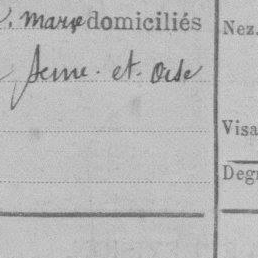 marxe domiciliés
Seine-et-Oise
Nez.
Visa
Deg